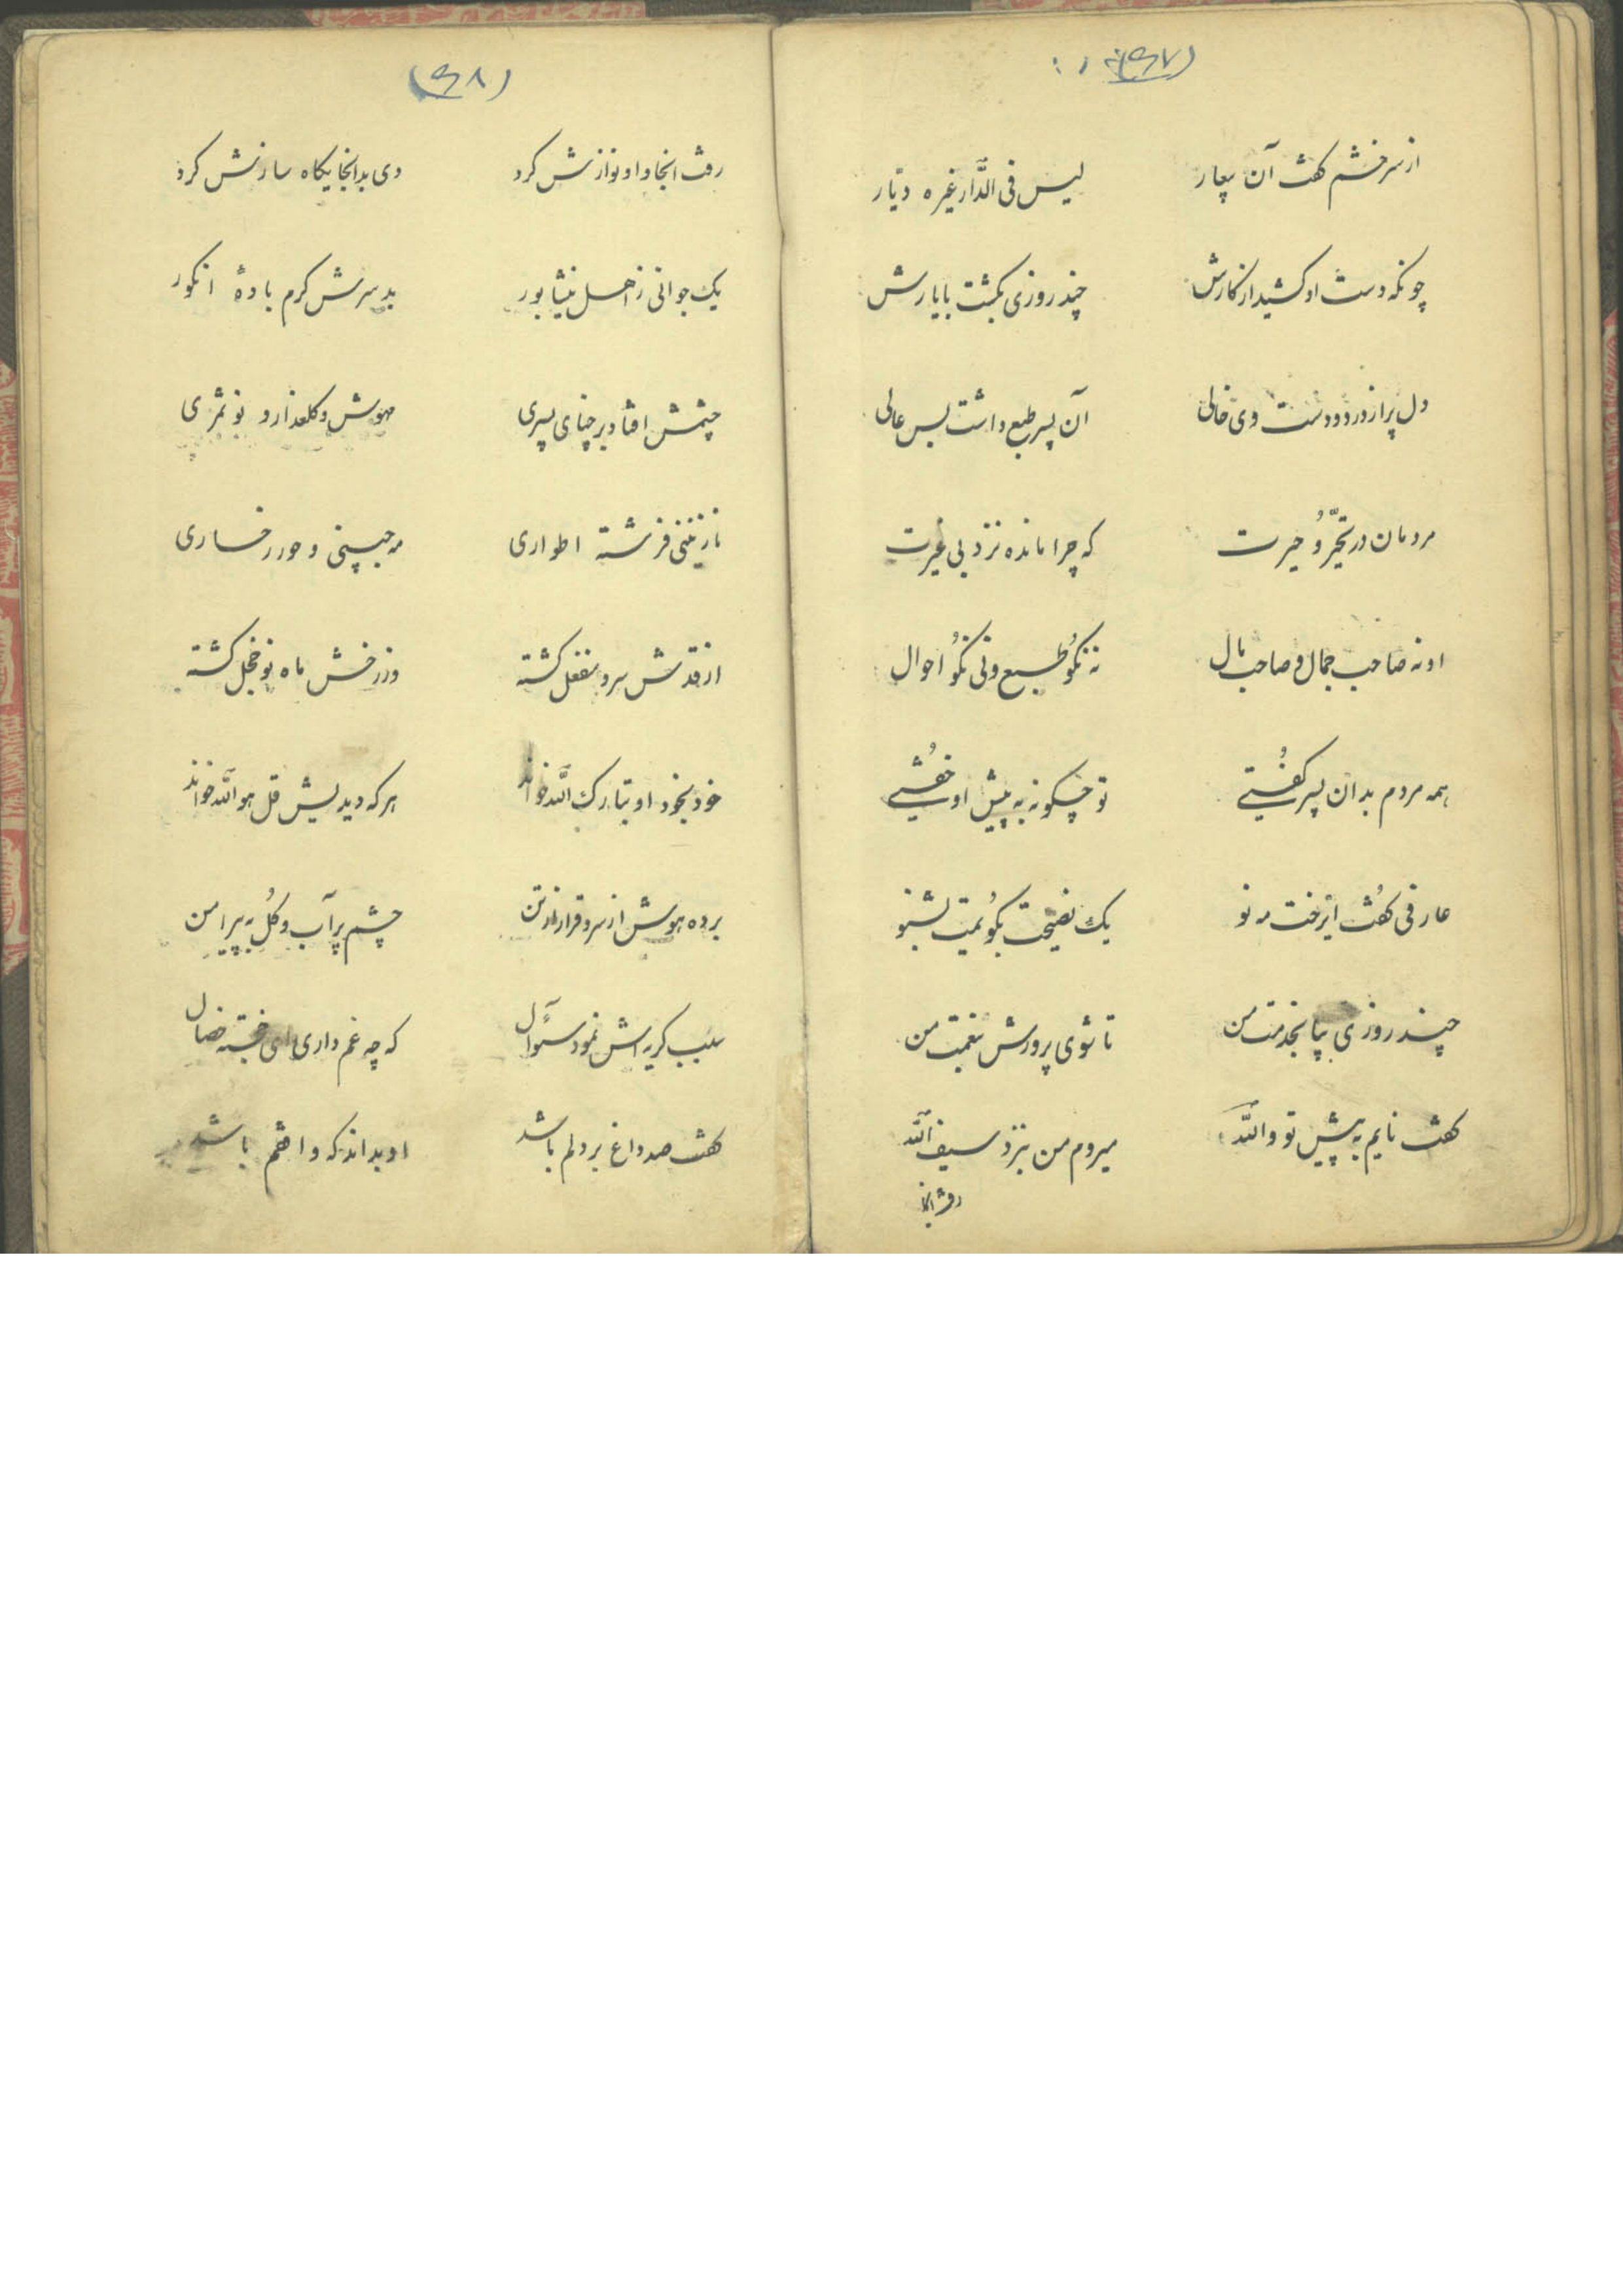 (۴۷)
از سر خشم گفت آن بیعار لیس فی الدّار غیره دیّار
چونکه دست او کشید از کارش چند روزی بگشت با یارش
دل پر از درد و دست وی خالی آن پسر طبع داشت بس عالی
مردمان در تحیّر و حیرت که چرا مانده نزد بی غیرت
او نه صاحب جمال و صاحب مال نه نکو طبع و نی نکو احوال
همه مردم بدان پسر گفتی تو چگونه به پیش او خفتی
عارفی گفت ای رخت مه نو یک نصیحت بگویمت بشنو
چند روزی بیا بخدمت من تا شوی پرورش بنعمت من
گفت نایم به پیش تو واللّه میروم من بنزد سیف اللّه
رفت انجا
(۴۸)
رفت انجا و او نوازش کرد وی بدانجایکاه سازش کرد
یک جوانی ز اهل نیشابور بد سرش گرم بادهٔ انگور
چشمش افتاد بر چنای پسری مهوش و گلعذار و نو ثمری
نازنینی فرشته اطواری مه جبینی و حور رخساری
از قدش سرو منفعل گشته وز رخش ماه نو خجل گشته
خود بخود او تبارک اللّه خواند هر که دیدیش قل هو اللّه خواند
برده هوش از سر و قرار از تن چشم پر آب و گل به پیرامن
سبب گریه اش نمود سئوآل که چه غم داری ای خجسته خصال
گفت صد داغ بر دلم باشد او بداند که واقفم باشد